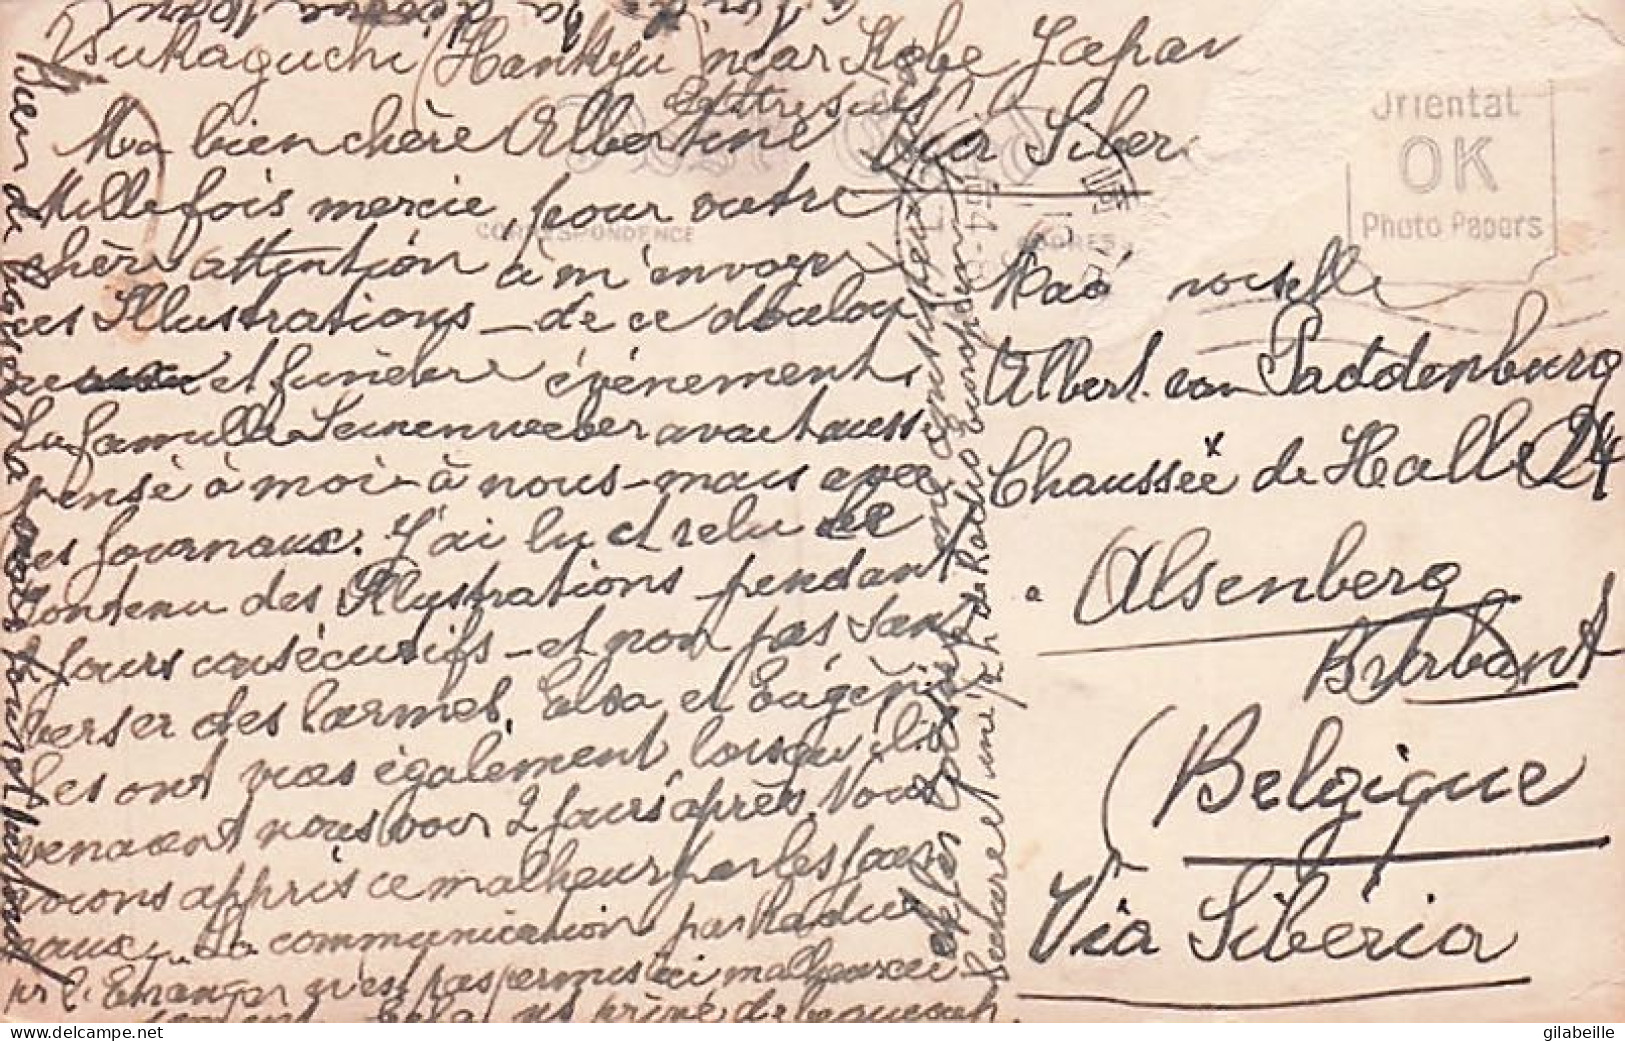 Tsukaguchi (Hankyu) near Kobe Japan
Ma bien chère Albertine Via Siber
Mille fois mercie, pour votre
chère attention à m'envoyer
ces Illustrations — de ce doulou
reux et funèbre événement.
La famille Leinenweber avait aussi
pensé à moi - à nous - mais avec
les journaux. J'ai lu et relu le
contenu des Illustrations pendant
jours consécutifs — et non pas sans
verser des larmes. Elsa et Eugénie
les ont vues également lorsqu'ils
venaient nous voir 2 jours après. Nous
avions appris ce malheur par les jour
naux. La communication par Radio
pr l'Etranger n'est pas permis ici malheureu
sement. Cela ns prive de beaucoup
CORRESPONDENCE
ADDRESS
Oriental
OK
Photo Papers
Mademoiselle
Albert. van Paddenburg
Chaussée de Halle 24
à Alsenberg
Brabant
(Belgique
Via Sibéria
gilabeille